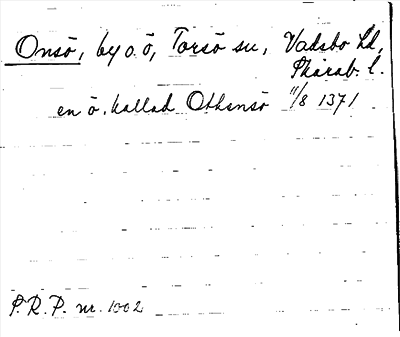 Onsö, by o. ö, Torsö sn, Vadsbo hd,
Skarab. l.
en ö, kallad Othensö 11/8 1371
P.R.P. nr. 1002